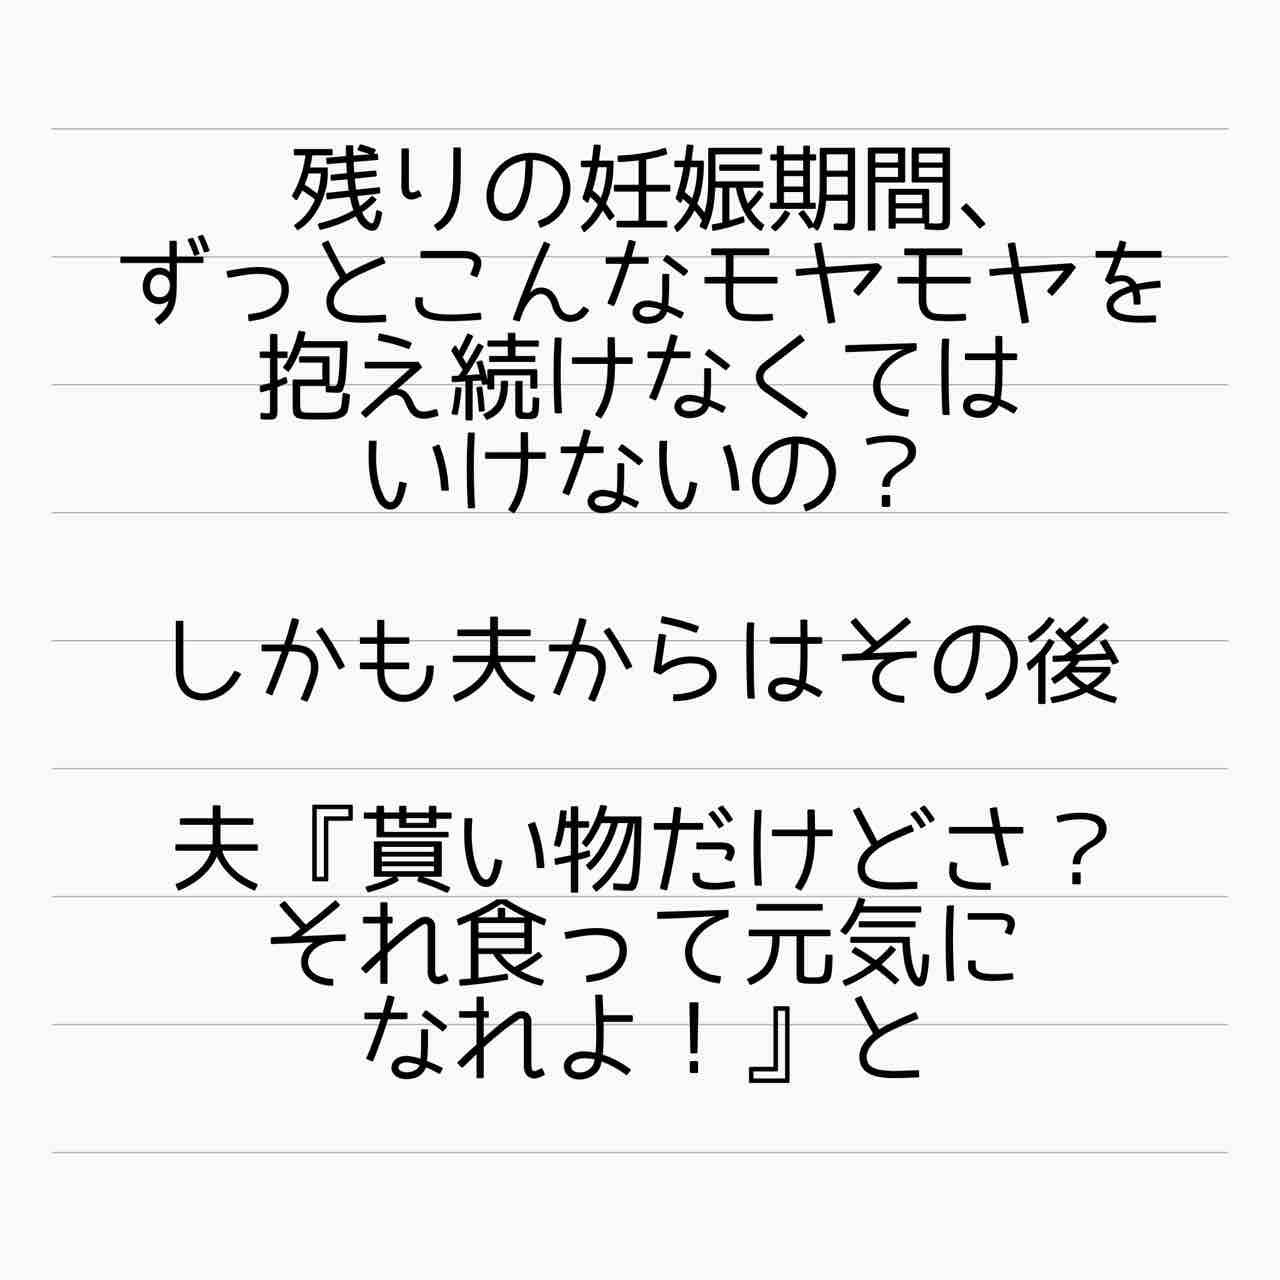 残りの妊娠期間、
ずっとこんなモヤモヤを
抱え続けなくては
いけないの？
しかも夫からはその後
夫『貰い物だけどさ？
それ食って元気に
なれよ！』と